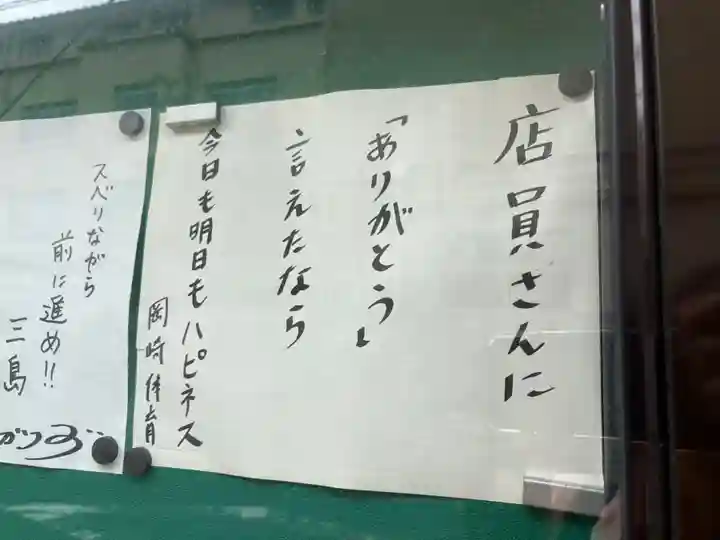 店員さんに
「ありがとう」
言えたなら
今日も明日もハピネス
岡崎体育
スベりながら
前に進め!!
三島